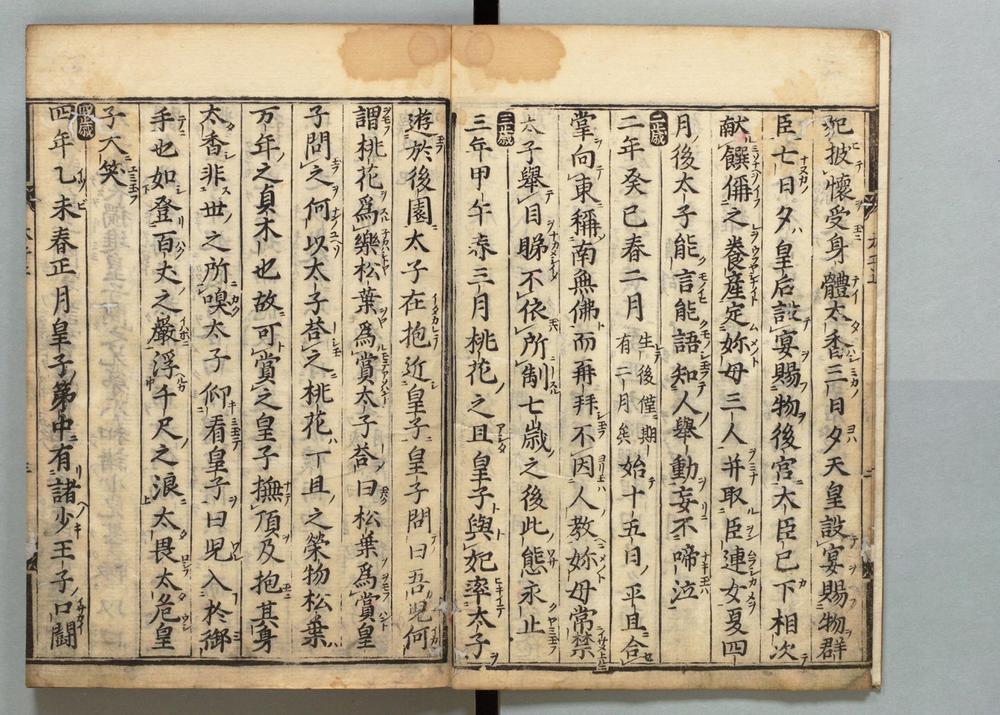 妃披懐受身體太香三日夕天皇設宴賜物群
臣七日夕皇后設宴賜物後宮大臣已下相次
献饌儞之養産定妳母三人并取臣連女夏四
月後太子能言能語知人舉動妄不啼泣
二歳
二年癸巳春二月生後僅期有二月矣始十五日平旦合
掌向東稱南無佛而再拜不因人教妳母常禁
太子舉目睇不依所制七歳之後此態永止
三歳
三年甲午春三月桃花之旦皇子與妃率太子
遊於後園太子在抱近皇子皇子問曰吾児何
謂桃花為樂松葉為賞太子荅曰松葉為賞皇
子問之何以太子荅之桃花一旦之榮物松葉
万年之貞木也故可賞之皇子撫頂及抱其身
太香非世之所嗅太子仰看皇子曰児入於御
手也如登百丈之巌浮千尺之浪太畏太危皇
子大笑
四歳
四年乙未春正月皇子第中有諸少王子口闘